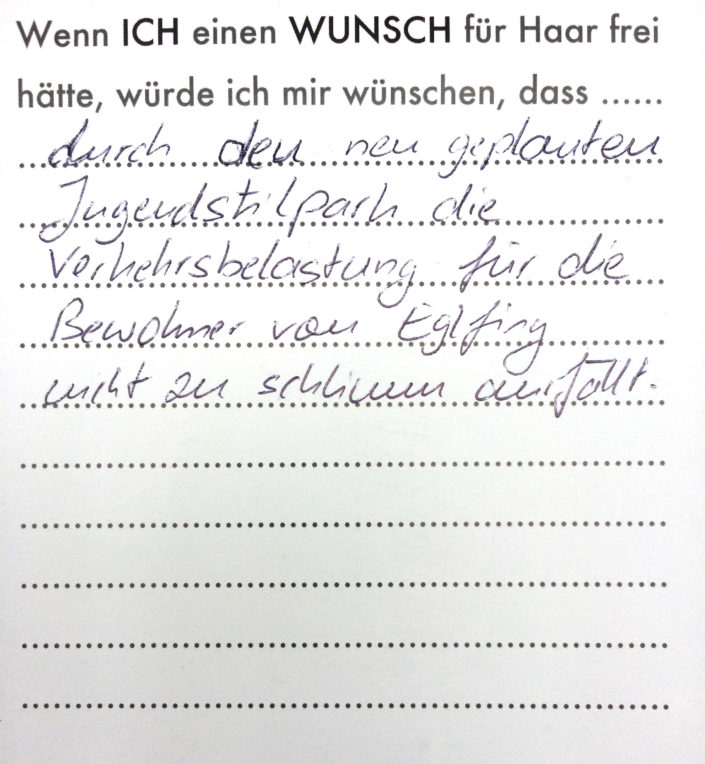 Wenn ICH einen WUNSCH für Haar frei
hätte, würde ich mir wünschen, dass ......
durch den neu geplanten
Jugendstilpark die
Verkehrsbelastung für die
Bewohner von Eglfing
nicht zu schlimm ausfällt.